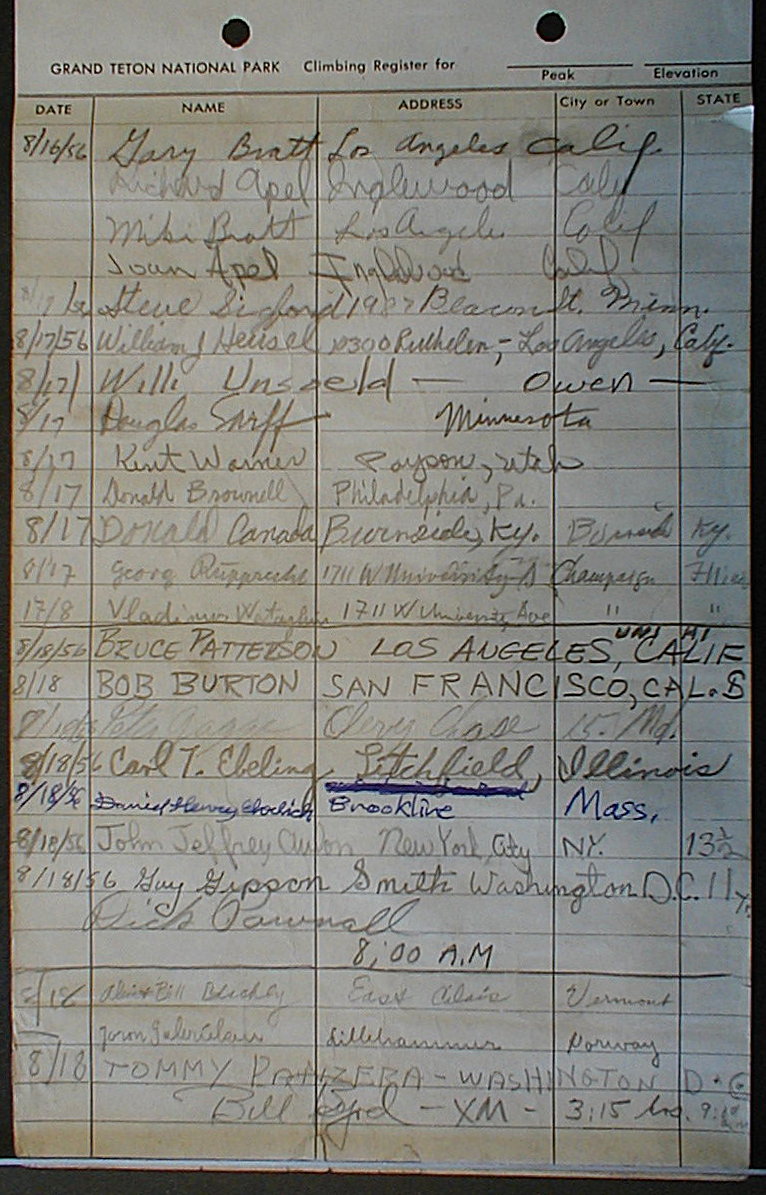 GRAND TETON NATIONAL PARK Climbing Register for
Peak Elevation
DATE NAME ADDRESS City or Town STATE
8/16/56 Gary Bratt Los Angeles Calif.
Richard Apel Inglewood Calif
Mike Bratt Los Angeles Calif
Joan Apel Inglewood Calif.
Steve Beacon St. Minn.
8/17/56 William J Heusel 10300 Ruthelen, - Los Angeles, Calif.
8/17/ Willi Unsoeld — Owen —
8/17 Douglas Sarff Minnesota
8/17 Kent Warner Payson, Utah
8/17 Donald Brownell Philadelphia, Pa.
8/17 Donald Canada Burnside, Ky. Burnside Ky.
8/17 Georg Rupprecht 1711 W University Champaign
17/8 Vladimir 1711 W University Ave " "
UNI HI
8/18/56 BRUCE PATTERSON LOS ANGELES, CALIF
8/18 BOB BURTON SAN FRANCISCO, CAL.
Chevy Chase 15. Md.
8/18/56 Carl T. Ebeling Litchfield, Illinois
8/18/56 Daniel Henry Brookline Mass.
8/18/56 John Jeffrey New York, City NY. 13 1/2
8/18/56 Guy Gipson Smith Washington D.C. 11
Dick Pownall
8:00 A.M
8/18 Bill East Vermont
Lillehammer Norway
8/18 TOMMY - WASHINGTON D.C
Bill Byrd - XM - 3:15 hrs.